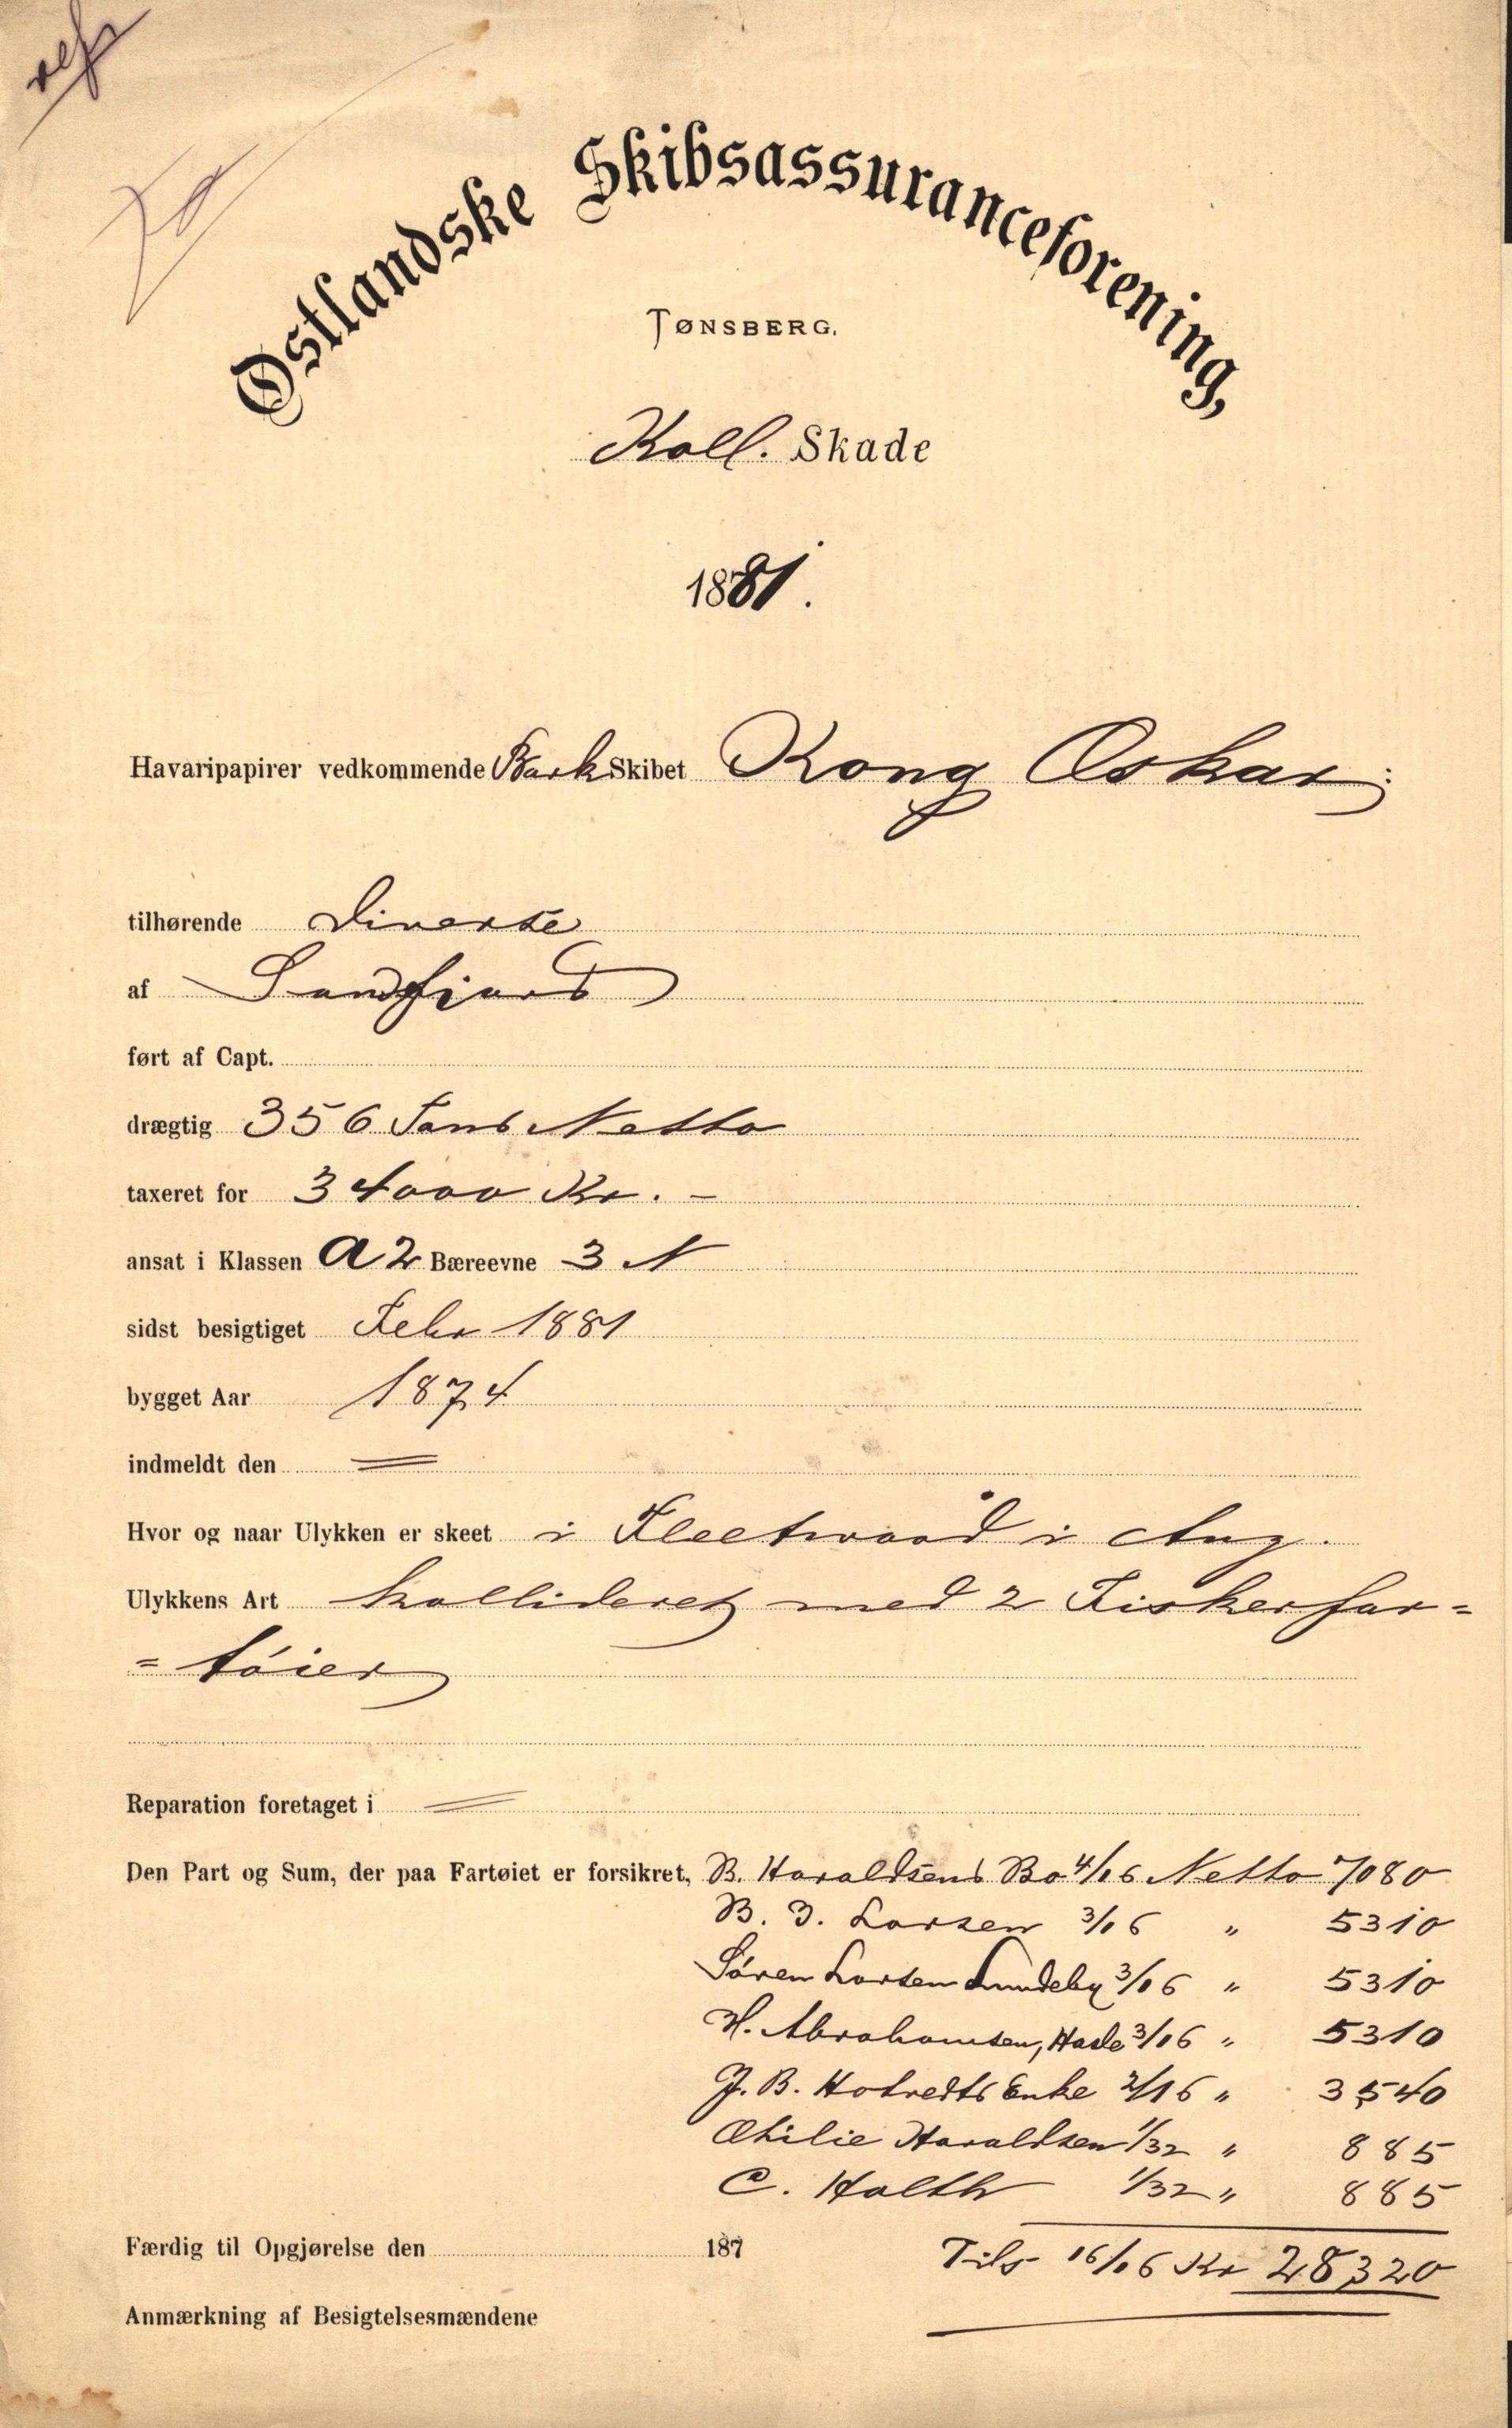 Østlandske Skibsassuranceforening,
TØNSBERG.
Koll. Skade
1881.
Havaripapirer vedkommende Bark Skibet Kong Oskar
tilhørende Diverse
af Sandefjord
ført af Capt.
drægtig 356 Tons Netto
taxeret for 34000 Kr. –
ansat i Klassen A2 Bæreevne 3 N
sidst besigtiget Febr 1881
bygget Aar 1874
indmeldt den =
Hvor og naar Ulykken er skeet i Fleetwood i Aug.
Ulykkens Art kollideret med 2 Fiskerfar=
=tøier
Reparation foretaget i =
Den Part og Sum, der paa Fartøiet er forsikret, B. Haraldsens Bo 4/16 Netto 7080
B. J. Larsen 3/16 " 5310
Søren Larsen Lundeby 3/16 " 5310
H. Abrahamsen, Hasle 3/16 " 5310
J. B. Hotvedts Enke 2/16 " 3540
Haraldsen 1/32 " 885
C. Holth 1/32 " 885
Færdig til Opgjørelse den 187
Tils 16/16 Kr 28320
Anmærkning af Besigtelsesmændene